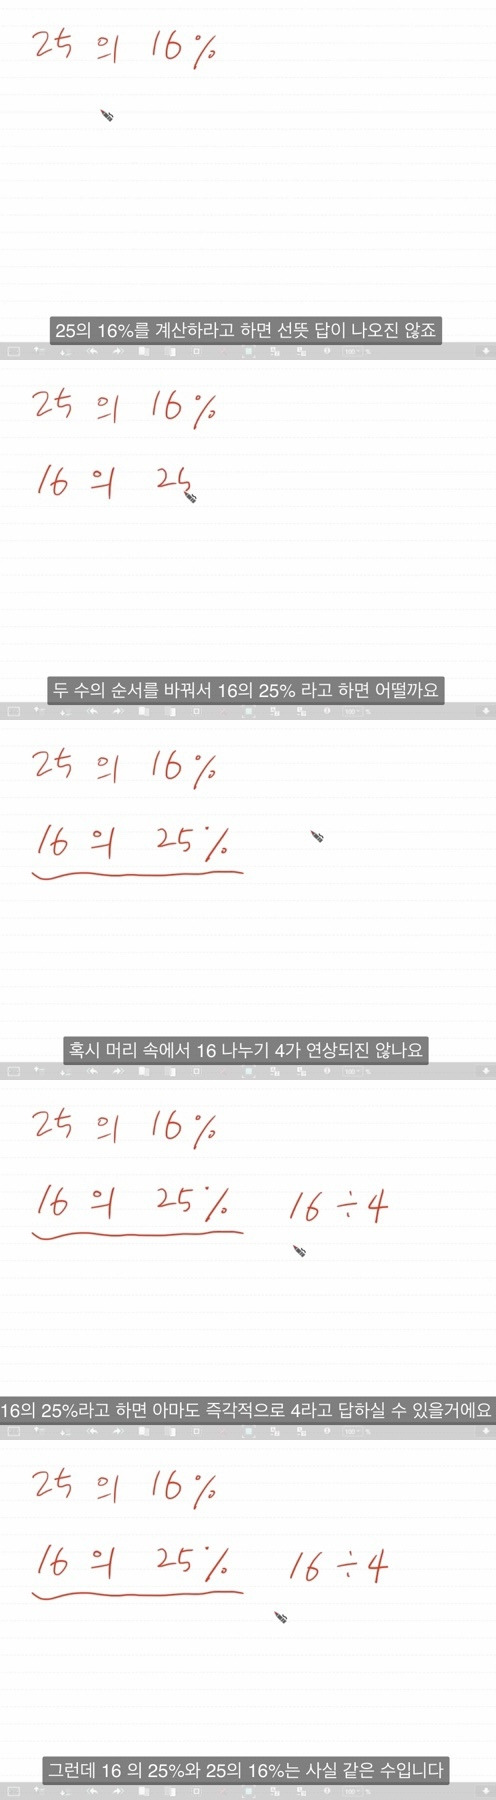 25 의 16%
25의 16%를 계산하라고 하면 선뜻 답이 나오진 않죠
25 의 16%
16 의 25
두 수의 순서를 바꿔서 16의 25% 라고 하면 어떨까요
25 의 16%
16 의 25%
혹시 머리 속에서 16 나누기 4가 연상되진 않나요
25 의 16%
16 의 25% 16÷4
16의 25%라고 하면 아마도 즉각적으로 4라고 답하실 수 있을거에요
25 의 16%
16 의 25% 16÷4
그런데 16 의 25%와 25의 16%는 사실 같은 수입니다